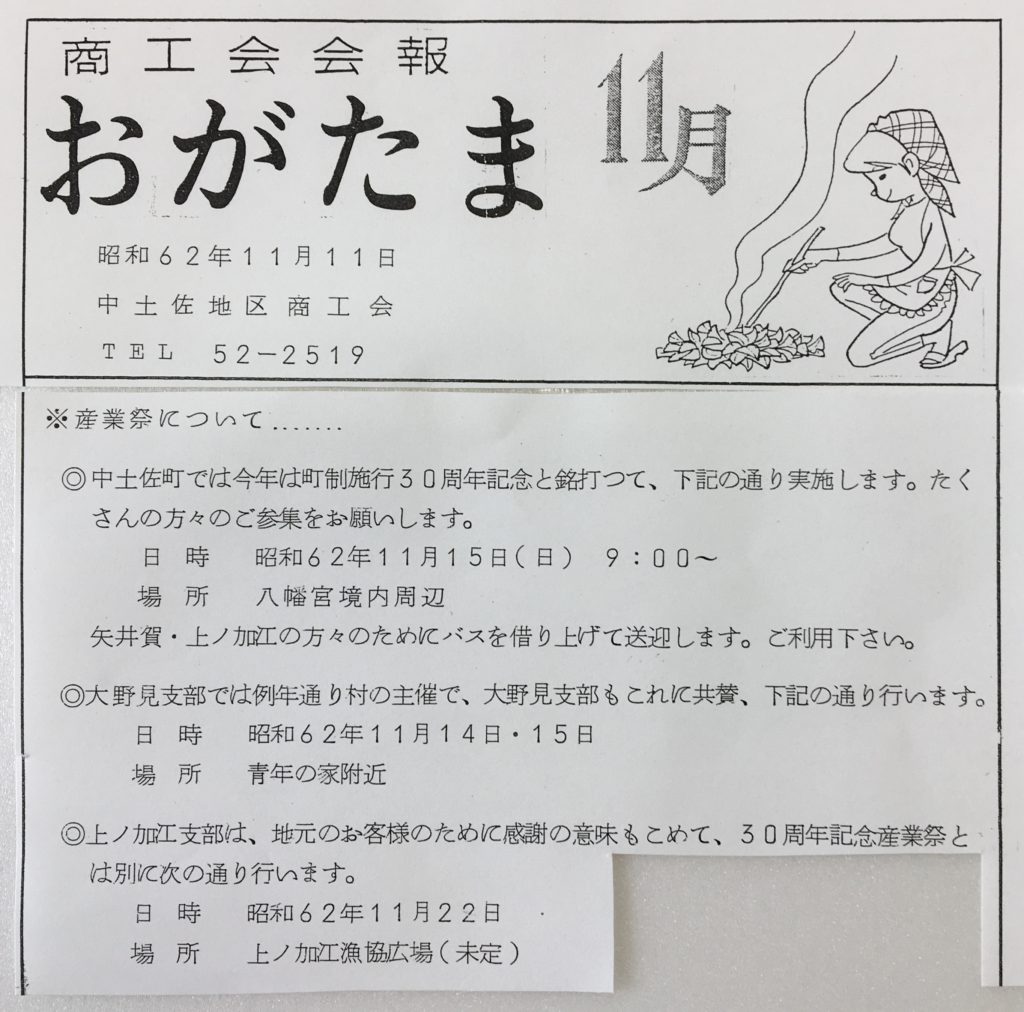 商工会会報
おがたま
11月
昭和62年11月11日
中土佐地区商工会
TEL 52-2519
※産業祭について.......
◎中土佐町では今年は町制施行30周年記念と銘打つて、下記の通り実施します。たく
さんの方々のご参集をお願いします。
日時 昭和62年11月15日(日) 9:00~
場所 八幡宮境内周辺
矢井賀・上ノ加江の方々のためにバスを借り上げて送迎します。ご利用下さい。
◎大野見支部では例年通り村の主催で、大野見支部もこれに共賛、下記の通り行います。
日時 昭和62年11月14日・15日
場所 青年の家附近
◎上ノ加江支部は、地元のお客様のために感謝の意味もこめて、30周年記念産業祭と
は別に次の通り行います。
日時 昭和62年11月22日
場所 上ノ加江漁協広場(未定)